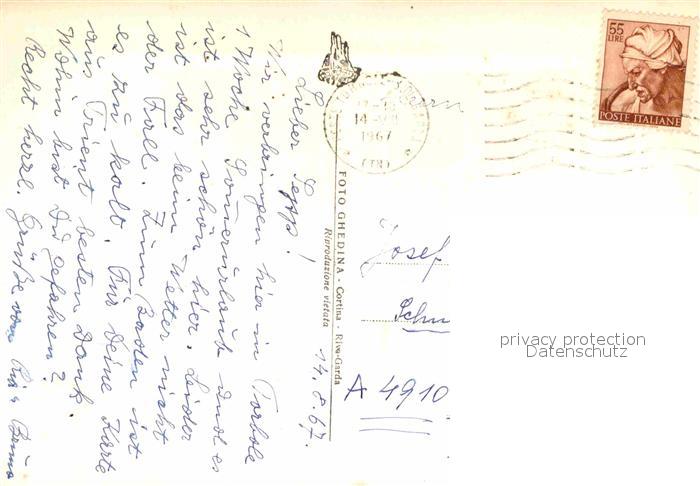 14.8.67.
Lieber Sepp!
Wir verbringen hier in Torbole
1 Woche Sommerurlaub und es
ist sehr schön hier. Leider
ist das keine Wetter nicht
der Fall. Zum Baden ist
es zu kalt. Für Deine Karte
aus Trient besten Dank.
Wohin bist Du gefahren?
Recht herzl. Grüße von
FOTO GHEDINA - Cortina - Riva-Garda
Riproduzione vietata
14
1967
(TN)
55
LIRE
POSTE ITALIANE
Herrn
Josef
Schu
A 4910
privacy protection
Datenschutz